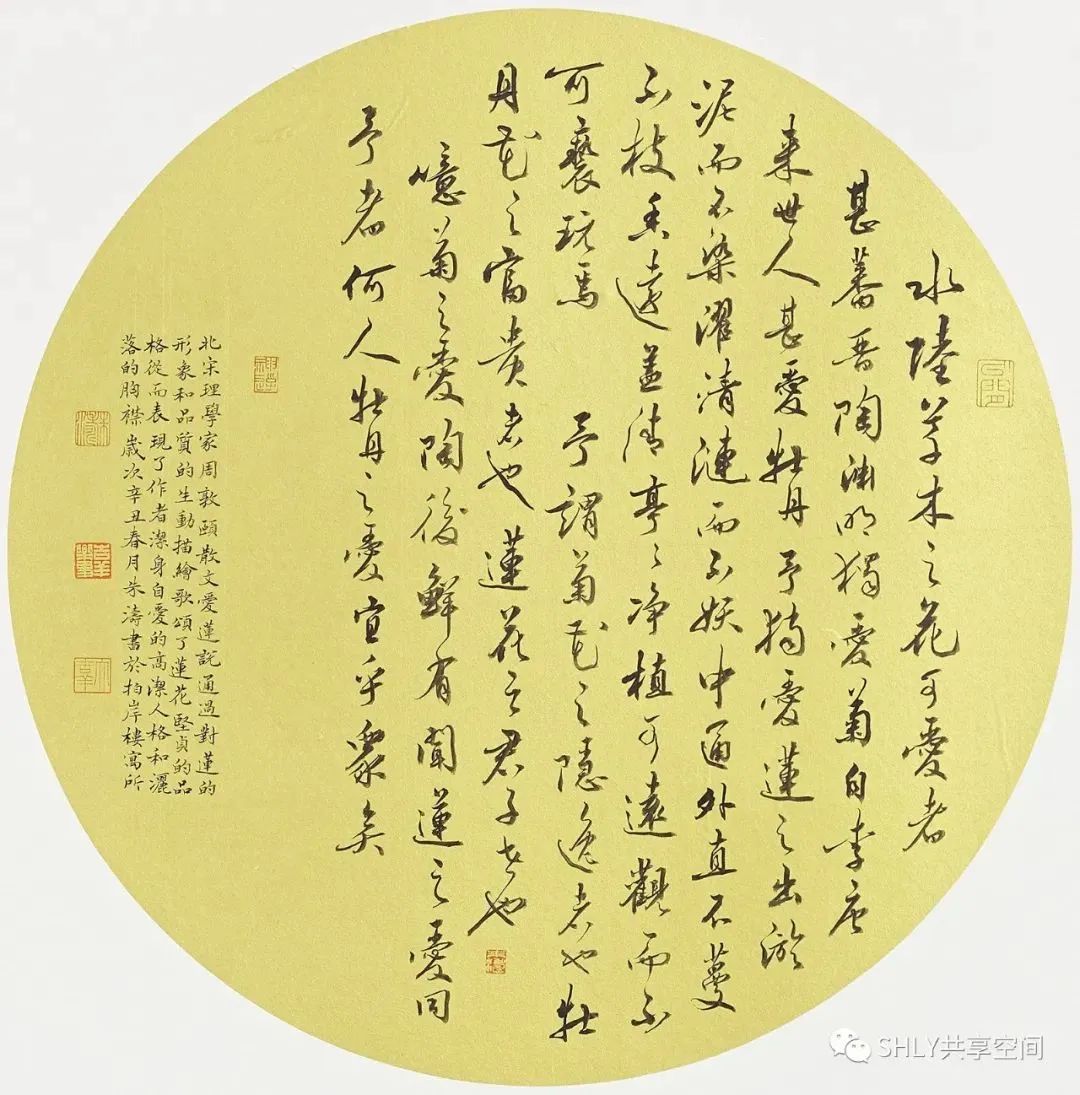 水陸草木之花可愛者
甚蕃晋陶渊明獨愛菊自李唐
来世人甚愛牡丹予獨愛蓮之出淤
泥而不染濯清漣而不妖中通外直不蔓
不枝香遠益清亭々净植可遠觀而不
可褻玩焉 予謂菊花之隱逸者也牡
丹花之富贵者也蓮花之君子者也
噫菊之愛陶後鮮有聞蓮之愛同
予者何人牡丹之愛宜乎衆矣
北宋理學家周敦頤散文愛蓮説通過對蓮的
形象和品質的生動描繪歌頌了蓮花堅貞的品
格從而表現了作者潔身自愛的高潔人格和灑
落的胸襟歲次辛丑春月朱濤書於柏岸樓寓所
SHLY共享空间